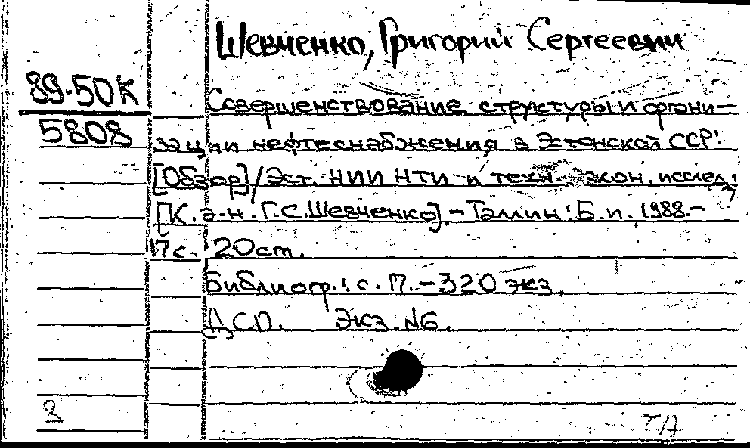 Шевченко, Григорий Сергеевич
89-50К
5808
Совершенствование структуры и органи-
зации нефтеснабжения в Эстонской ССР:
[Обзор]/Эст. НИИ НТИ и техн.-экон. исслед.;
[К.э.н. Г.С.Шевченко].-Таллин: Б.и., 1988.-
17с. 20см.
Библиогр.: с.17.-320 экз.
ДСП. Экз. №6.